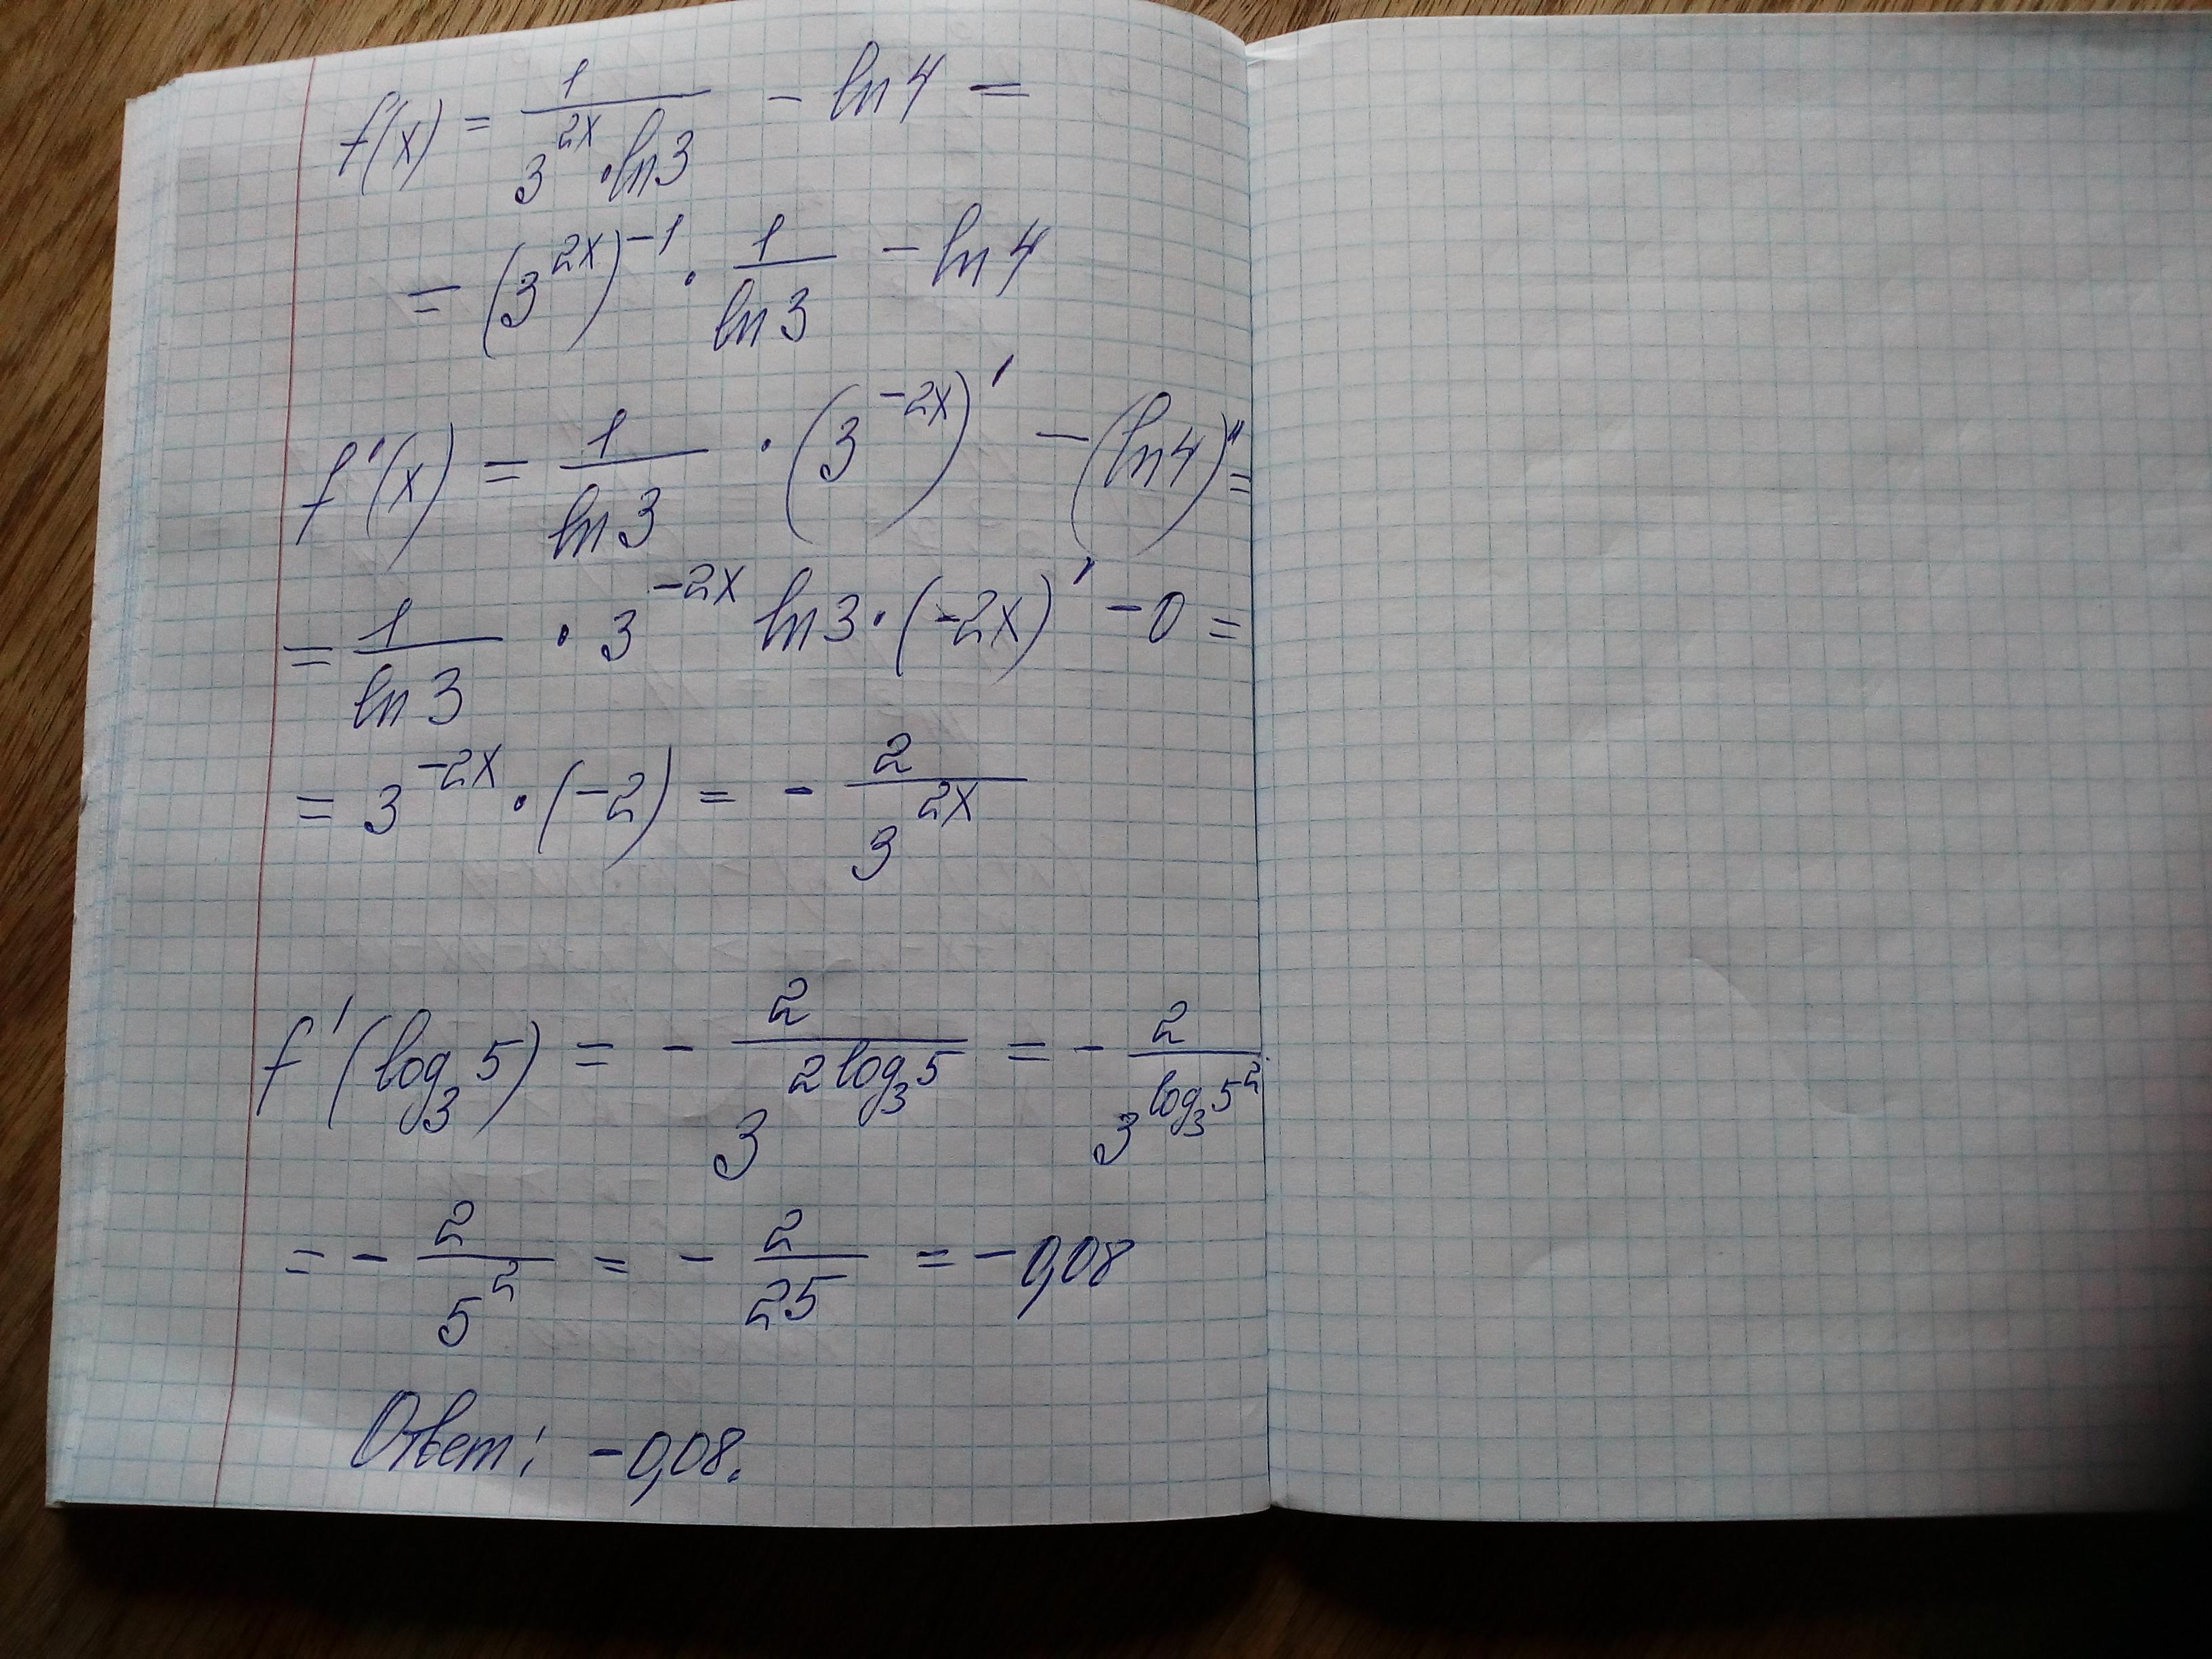 f(x) = 1/(3^(2x) · ln3) − ln4 =
= (3^(2x))^(−1) · 1/ln3 − ln4
f'(x) = 1/ln3 · (3^(−2x))' − (ln4)' =
= 1/ln3 · 3^(−2x) ln3 · (−2x)' − 0 =
= 3^(−2x) · (−2) = − 2/3^(2x)
f'(log₃5) = − 2/3^(2log₃5) = − 2/3^(log₃5²)
= − 2/5² = − 2/25 = −0,08
Ответ: −0,08.